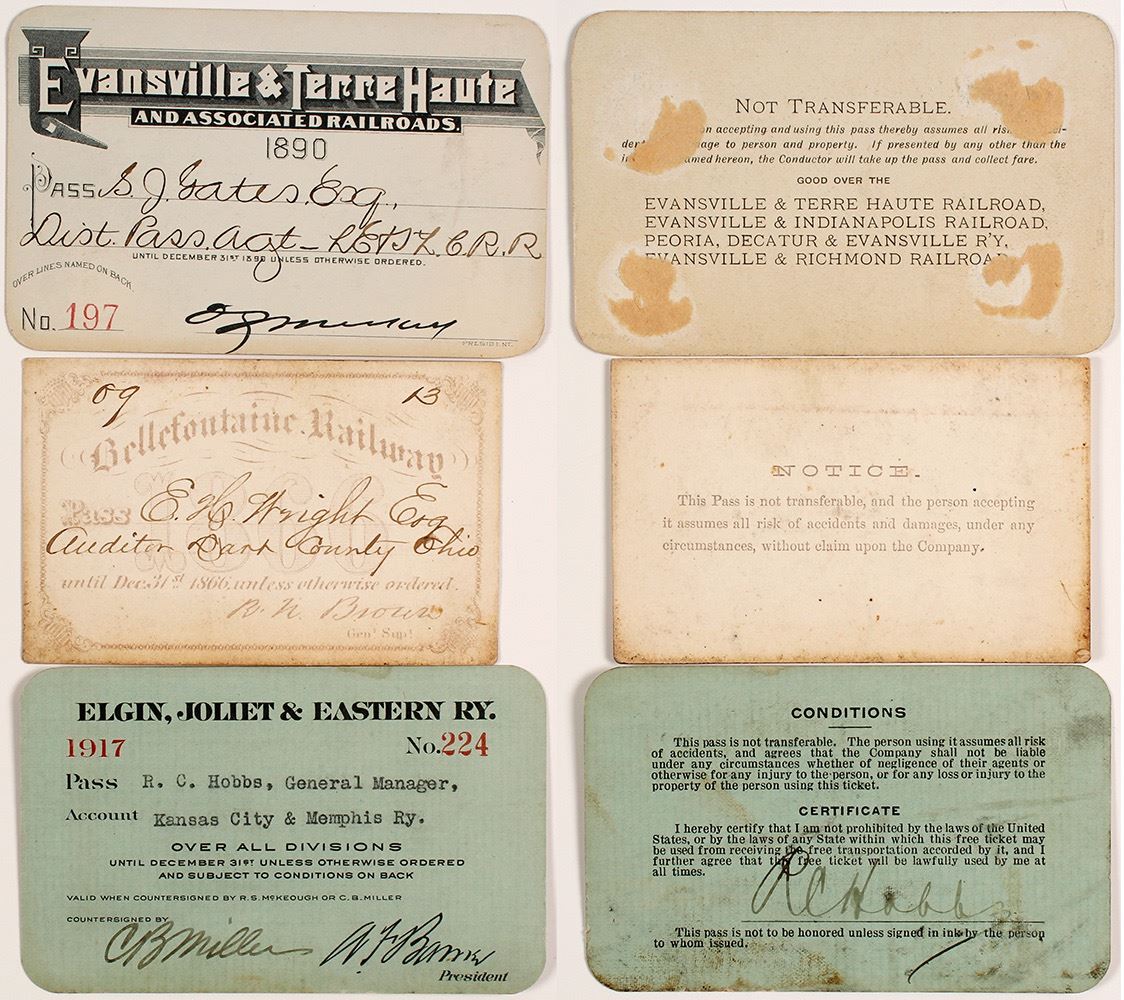 Evansville & Terre Haute
AND ASSOCIATED RAILROADS.
1890
PASS S. J. Gates, Esq.,
Dist. Pass. Agt – L E & St. L. C. R. R
UNTIL DECEMBER 31ST 1890 UNLESS OTHERWISE ORDERED.
OVER LINES NAMED ON BACK.
No. 197
PRESIDENT.
NOT TRANSFERABLE.
on accepting and using this pass thereby assumes all
to person and property. If presented by any other than the
named hereon, the Conductor will take up the pass and collect fare.
GOOD OVER THE
EVANSVILLE & TERRE HAUTE RAILROAD,
EVANSVILLE & INDIANAPOLIS RAILROAD,
PEORIA, DECATUR & EVANSVILLE R'Y,
EVANSVILLE & RICHMOND RAILROAD
09 13
Bellefontaine Railway
Pass E. H. Wright Esq
Auditor Dark County Ohio
until Dec. 31st 1866, unless otherwise ordered.
R. N. Brown
Genl Supt
NOTICE.
This Pass is not transferable, and the person accepting
it assumes all risk of accidents and damages, under any
circumstances, without claim upon the Company.
ELGIN, JOLIET & EASTERN RY.
1917 No. 224
Pass R. C. Hobbs, General Manager,
Account Kansas City & Memphis Ry.
OVER ALL DIVISIONS
UNTIL DECEMBER 31ST UNLESS OTHERWISE ORDERED
AND SUBJECT TO CONDITIONS ON BACK
VALID WHEN COUNTERSIGNED BY R. S. McKEOUGH OR C. B. MILLER
COUNTERSIGNED BY
C B Miller
President
CONDITIONS
This pass is not transferable. The person using it assumes all risk
of accidents, and agrees that the Company shall not be liable
under any circumstances whether of negligence of their agents or
otherwise for any injury to the person, or for any loss or injury to the
property of the person using this ticket.
CERTIFICATE
I hereby certify that I am not prohibited by the laws of the United
States, or by the laws of any State within which this free ticket may
be used from receiving the free transportation accorded by it, and I
further agree that this free ticket will be lawfully used by me at
all times.
R C Hobbs
This pass is not to be honored unless signed in ink by the person
to whom issued.